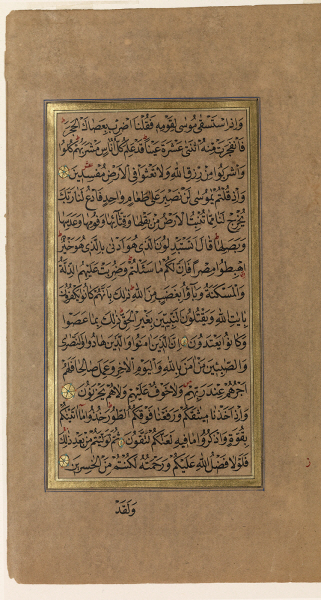 واذ استسقى موسى لقومه فقلنا اضرب بعصاك الحجر
فانفجرت منه اثنتى عشرة عينا قد علم كل اناس مشربهم كلوا
واشربوا من رزق الله ولا تعثوا فى الارض مفسدين
واذ قلتم يموسى لن نصبر على طعام واحد فادع لنا ربك
يخرج لنا مما تنبت الارض من بقلها وقثآئها وفومها وعدسها
وبصلها قال اتستبدلون الذى هو ادنى بالذى هو خير
اهبطوا مصرا فان لكم ما سئلتم وضربت عليهم الذلة
والمسكنة وبآؤا بغضب من الله ذلك بانهم كانوا يكفرون
بايت الله ويقتلون النبيين بغير الحق ذلك بما عصوا
وكانوا يعتدون ان الذين امنوا والذين هادوا والنصرى
والصبئين من امن بالله واليوم الاخر وعمل صالحا فلهم
اجرهم عند ربهم ولا خوف عليهم ولا هم يحزنون
واذ اخذنا ميثقكم ورفعنا فوقكم الطور خذوا ما اتينكم
بقوة واذكروا ما فيه لعلكم تتقون ثم توليتم من بعد ذلك
فلولا فضل الله عليكم ورحمته لكنتم من الخسرين
ولقد